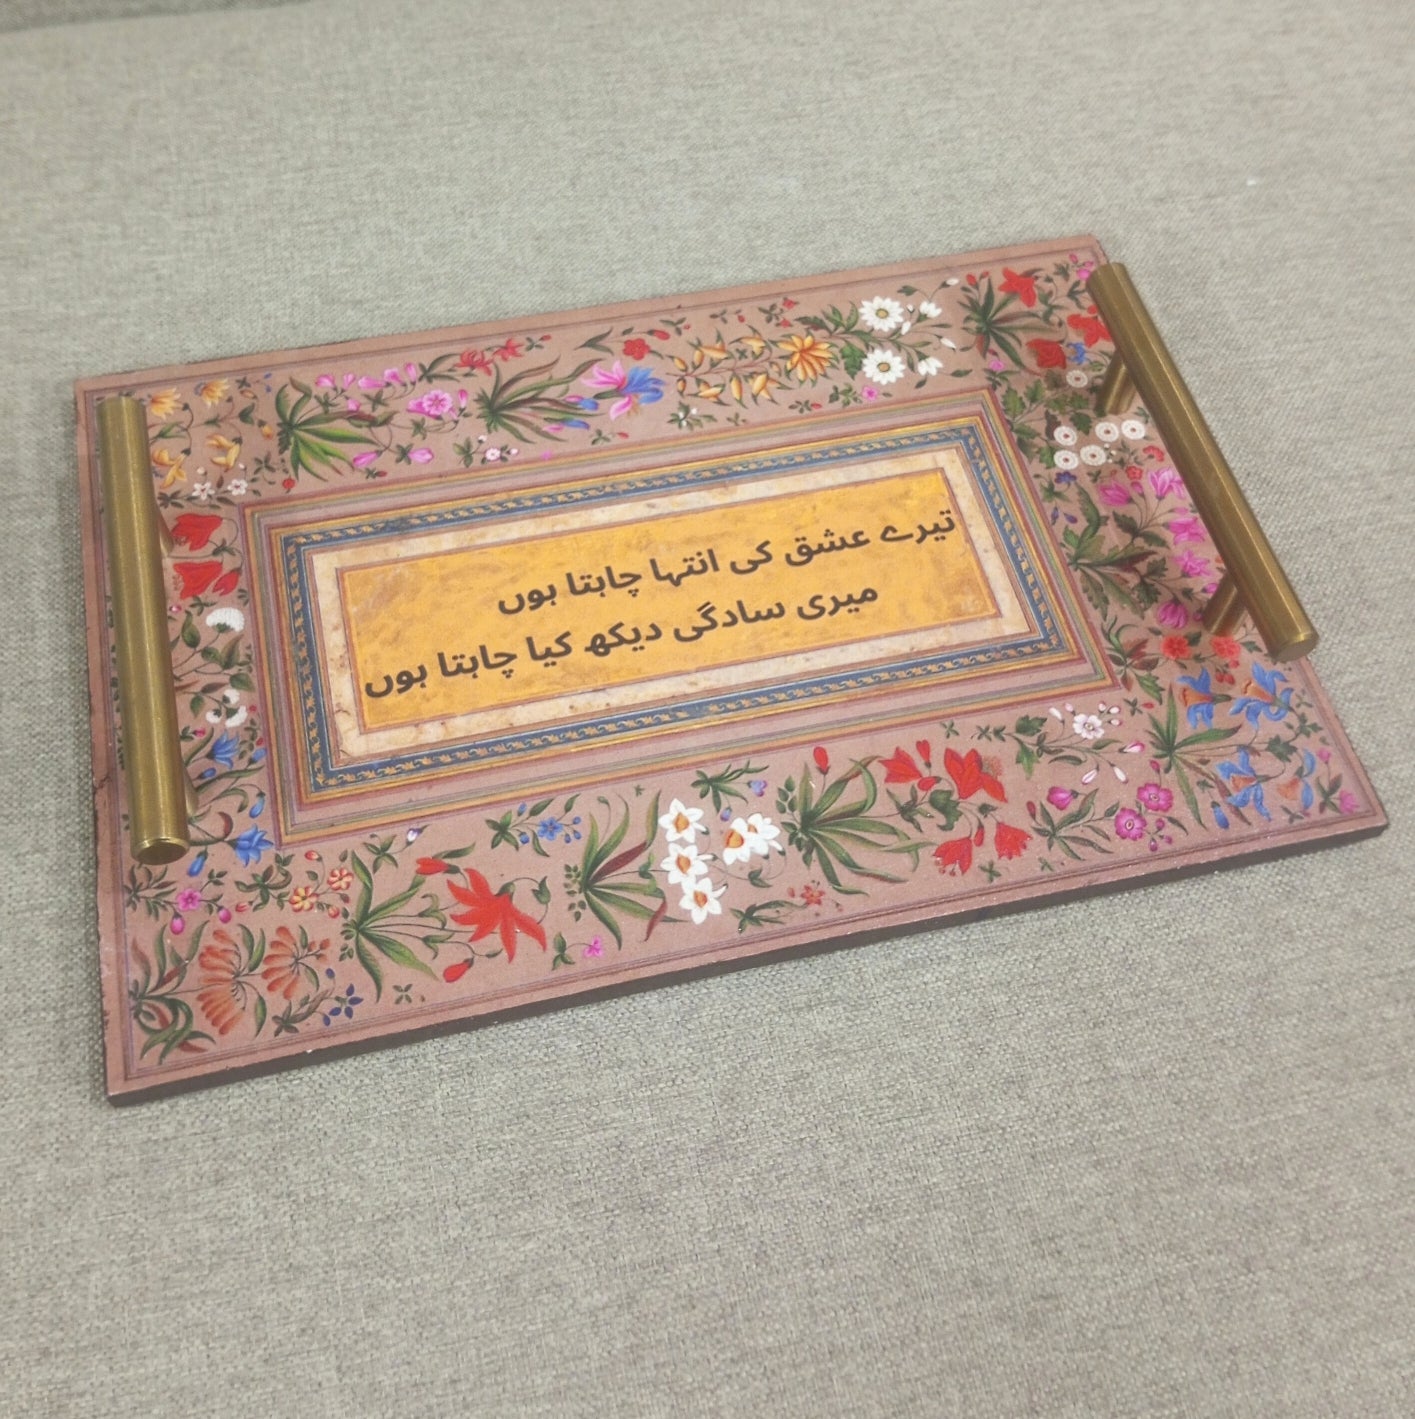 تیرے عشق کی انتہا چاہتا ہوں
میری سادگی دیکھ کیا چاہتا ہوں